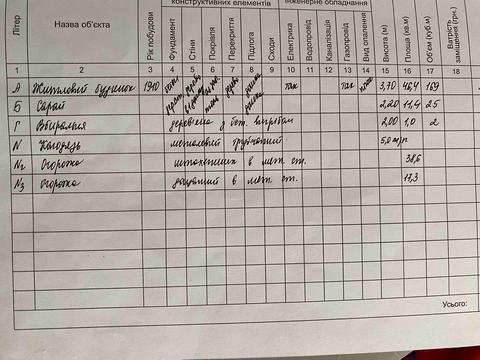 конструктивних елементів
Інженерне обладнання
Літер
Назва об'єкта
Рік побудови
Фундамент
Стіни
Покрівля
Перекриття
Підлога
Сходи
Електрика
Водопровід
Каналізація
Газопровід
Вид опалення
Висота (м)
Площа (кв.м)
Об'єм (куб.м)
Вартість заміщення (грн.)
1 2 3 4 5 6 7 8 9 10 11 12 13 14 15 16 17 18
А Житловий будинок 1910 так так 3,70 46,4 169
Б Сарай 2,20 11,4 25
Г Вбиральня дерев'яна з 2,00 1,0 2
N Колодязь металевий трубчатий 5,0
N2 Огорожа в мет. ст. 38,6
N3 Огорожа в мет. ст. 17,3
Усього: